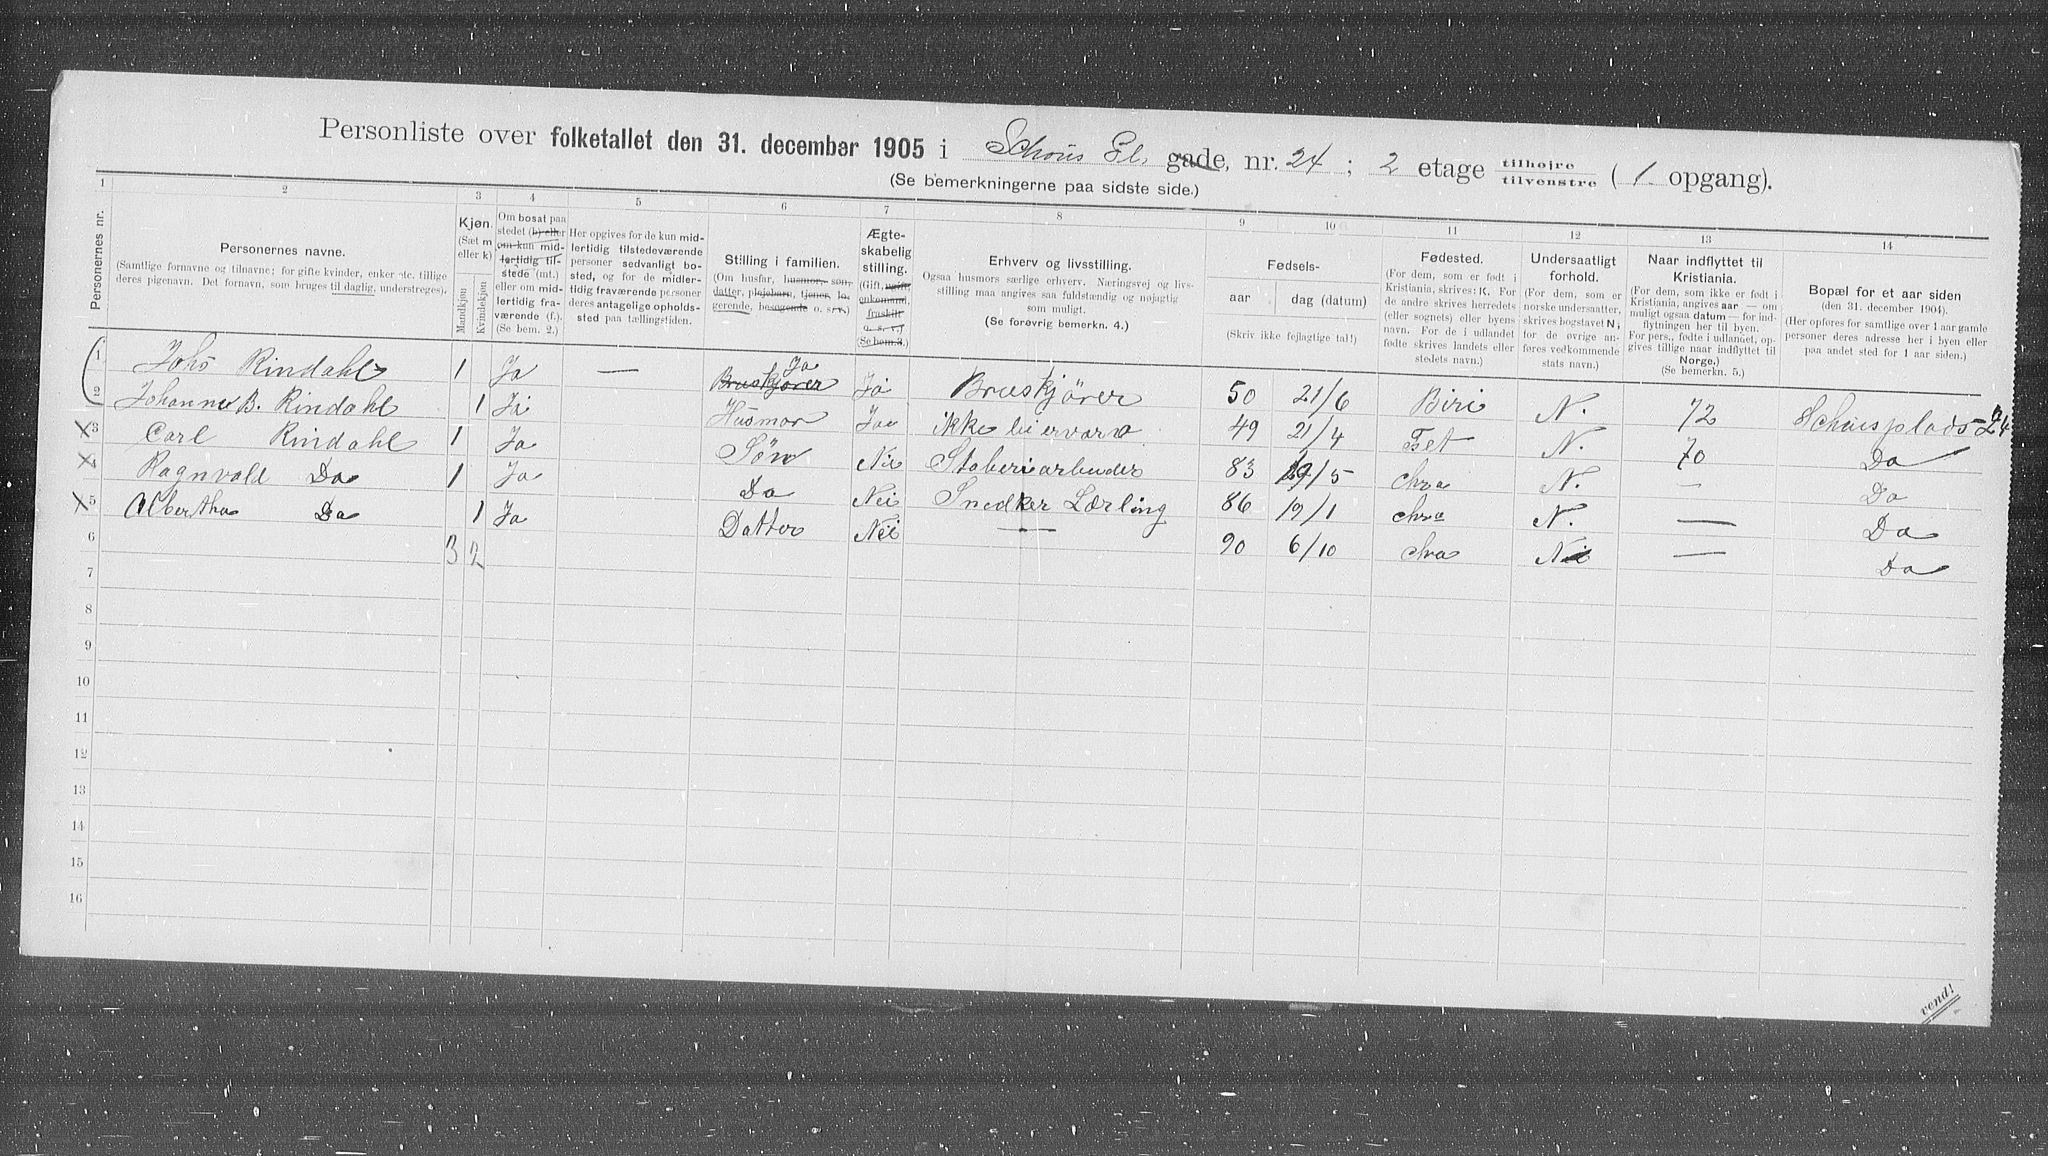 Personliste over folketallet den 31. december 1905 i Schous Pl. gade, nr. 24 ; 2 etage tilhøjre tilvenstre ( 1. opgang).
(Se bemerkningerne paa sidste side.)
1 2 3 4 5 6 7 8 9 10 11 12 13 14
Personernes nr.
Personernes navne.
(Samtlige fornavne og tilnavne; for gifte kvinder, enker etc. tillige
deres pigenavn. Det fornavn, som bruges til daglig, understreges).
Kjøn.
(Sæt m
eller k)
Mandkjøn
Kvindekjøn
Om bosat paa
stedet (b) eller
om kun mid-
lertidig til-
stede (mt.)
eller om mid-
lertidig fra-
værende (f.).
(Se bem. 2.)
Her opgives for de kun mid-
lertidig tilstedeværende
personer sedvanligt bo-
sted, og for de midler-
tidig fraværende personer
deres antagelige opholds-
sted paa tællingstiden.
Stilling i familien.
(Om husfar, husmor, søn,
datter, plejebarn, tjener, lo-
gerende, besøgende o. s. v.)
Ægte-
skabelig
stilling.
(Gift, ugift,
enkemand,
fraskilt
o. s. v.)
(Se bem. 3.)
Erhverv og livsstilling.
Ogsaa husmors særlige erhverv. Næringsvej og livs-
stilling maa angives saa fuldstændig og nøjagtig
som muligt.
(Se forøvrig bemerkn. 4.)
Fødsels-
aar
dag (datum)
(Skriv ikke fejlagtige tal!)
Fødested.
(For dem, som er født i
Kristiania, skrives: K. For
de andre skrives herredets
(eller sognets) eller byens
navn. For de i udlandet
fødte skrives landets eller
stedets navn.)
Undersaatligt
forhold.
(For dem, som er
norske undersatter,
skrives bogstavet N;
for de øvrige an-
føres vedkommende
stats navn.)
Naar indflyttet til
Kristiania.
(For dem, som ikke er født i
Kristiania, angives aar — om
muligt ogsaa datum — for ind-
flytningen her til byen.
For pers., fødte i udlandet, op-
gives tillige naar indflyttet til
Norge.)
(Se bemerkn. 5.)
Bopæl for et aar siden
(den 31. december 1904).
(Her opføres for samtlige over 1 aar gamle
personer deres adresse her i byen eller
paa andet sted for 1 aar siden.)
1 Johs Rindahl 1 Ja — Bruskjører Ja Ja Bruskjører 50 21/6 Biri N. 72 Schousplads 24
2 Johanne B. Rindahl 1 Ja Husmor Ja ikke 49 21/4 Fet N. 70 Do
3 Carl Rindahl 1 Ja Søn Nei Stoberiarbeider 83 /5 Chra N. — Do
4 Ragnvald Do 1 Ja Do Nei Snedker Lærling 86 19/1 Chra N. — Do
5 Albertha Do 1 Ja Datter Nei — 90 6/10 Chra N — Do
6 3 2
7
8
9
10
11
12
13
14
15
16
vend!